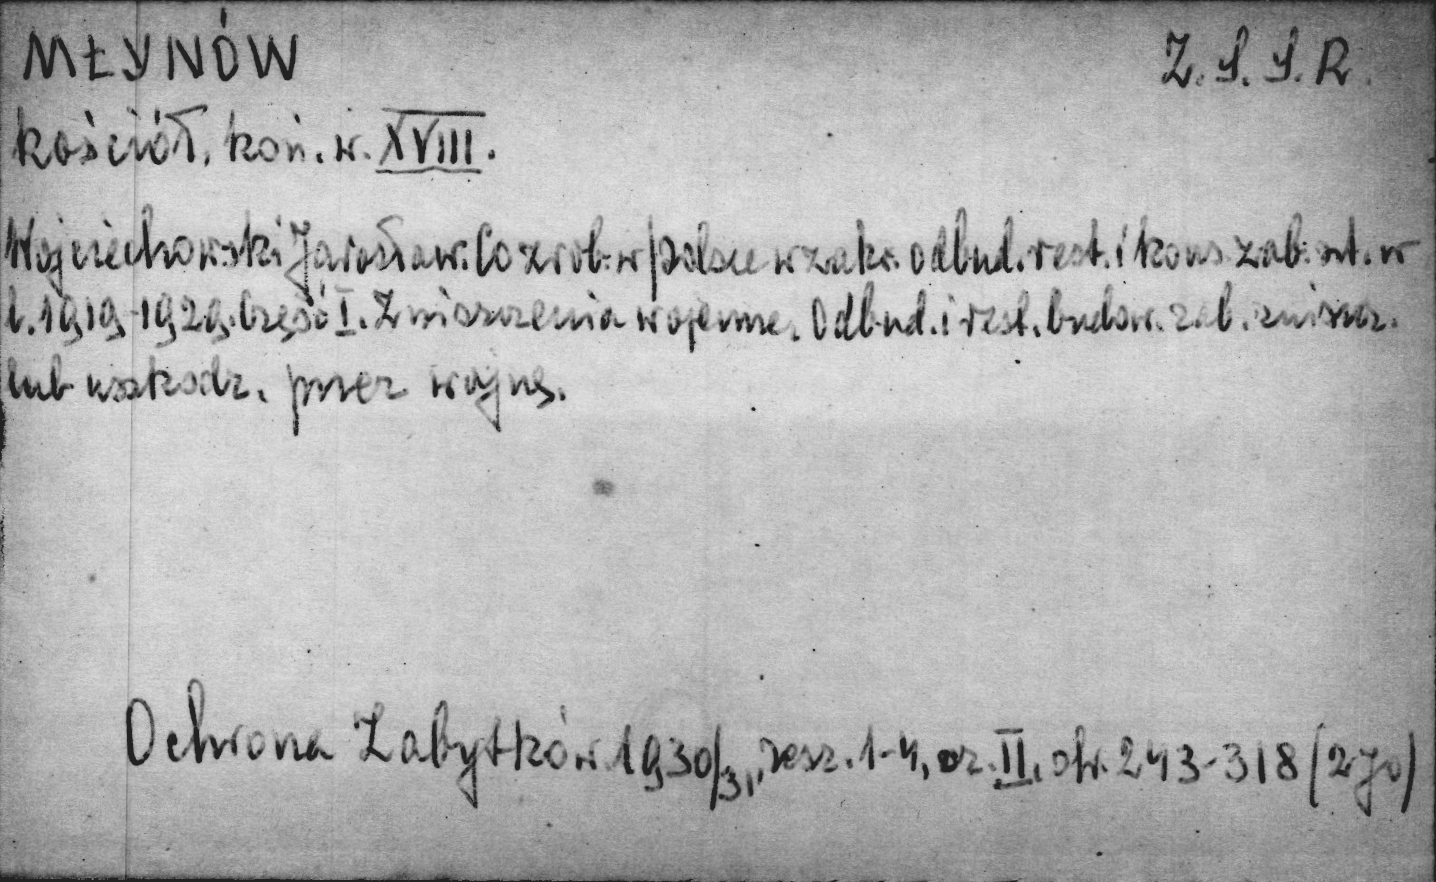 MŁYNÓW Z.S.S.R.
kościół, koń. w. XVIII.
Wojciechowski Jarosław. Co zrob. w Polsce w zakr. odbud. rest. i kons. zab. szt. w
l. 1919-1929. Część I. Zniszczenia wojenne. Odbud. i rest. budow. zab. zniszcz.
lub uszkodz. przez wojnę.
Ochrona Zabytków 1930/31, zesz. 1-4, cz. II, str. 243-318 (270)